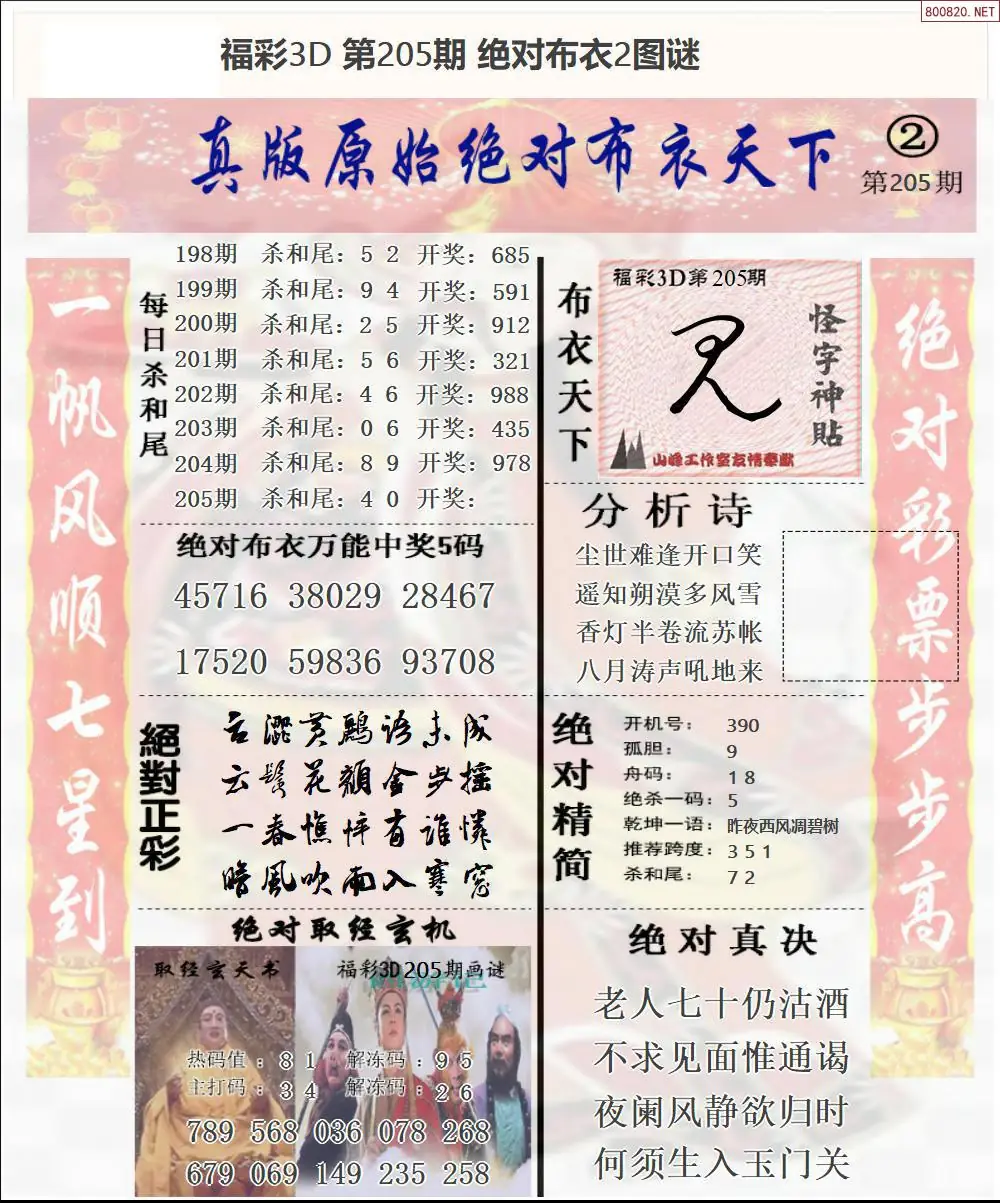 800820.NET
福彩3D 第205期 绝对布衣2图谜
真版原始绝对布衣天下
②
第205期
一帆风顺七星到
每日杀和尾
198期 杀和尾：5 2 开奖：685
199期 杀和尾：9 4 开奖：591
200期 杀和尾：2 5 开奖：912
201期 杀和尾：5 6 开奖：321
202期 杀和尾：4 6 开奖：988
203期 杀和尾：0 6 开奖：435
204期 杀和尾：8 9 开奖：978
205期 杀和尾：4 0 开奖：
绝对布衣万能中奖5码
45716 38029 28467
17520 59836 93708
絕對正彩
言澀黄鸝语未成
云鬓花顏金步摇
一春憔悴有谁憐
暗風吹雨入寒窓
绝对取经玄机
取经玄天书
福彩3D205期画谜
热码值：8 1 解冻码：9 5
主打码：3 4 解冻码：2 6
789 568 036 078 268
679 069 149 235 258
布衣天下
福彩3D第205期
怪字神貼
山峰工作室友情奉献
分析诗
尘世难逢开口笑
遥知朔漠多风雪
香灯半卷流苏帐
八月涛声吼地来
绝对精简
开机号：390
孤胆：9
舟码：1 8
绝杀一码：5
乾坤一语：昨夜西风凋碧树
推荐跨度：3 5 1
杀和尾：7 2
绝对真决
老人七十仍沽酒
不求见面惟通谒
夜阑风静欲归时
何须生入玉门关
绝对彩票步步高